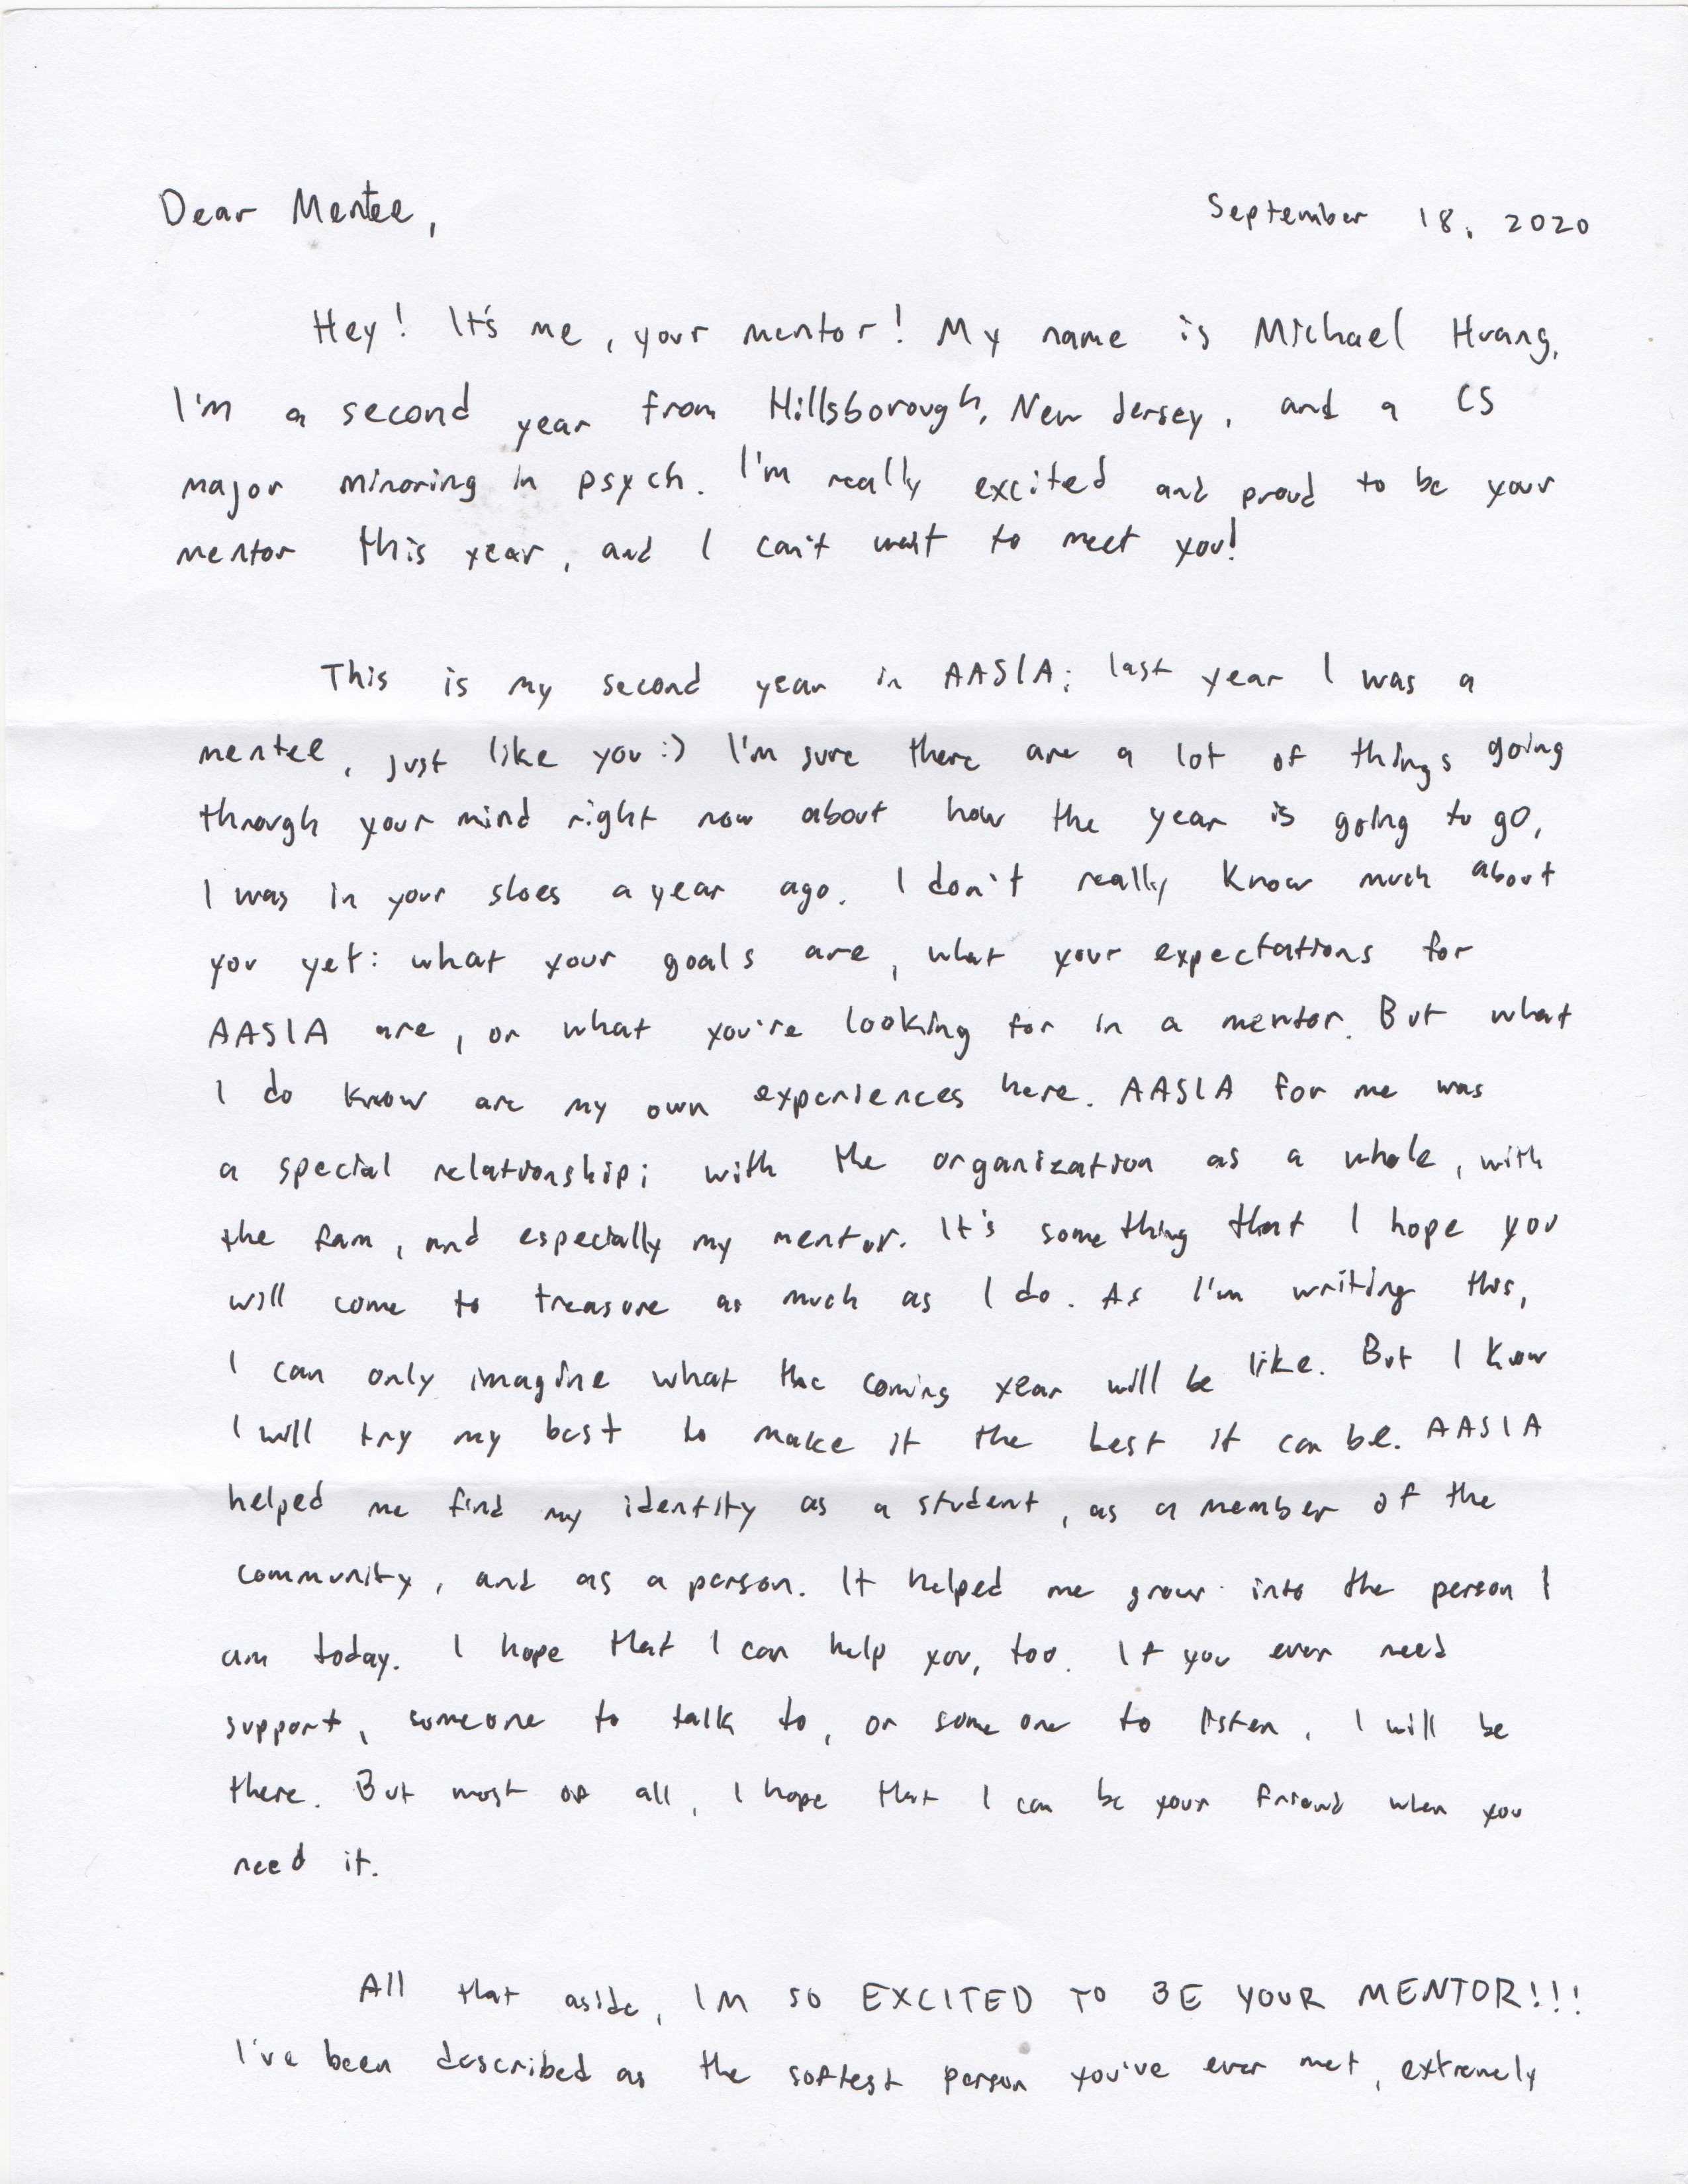 Dear Mentee,
September 18, 2020
Hey! It's me, your mentor! My name is Michael Huang,
I'm a second year from Hillsborough, New Jersey, and a CS
major minoring in psych. I'm really excited and proud to be your
mentor this year, and I can't wait to meet you!
This is my second year in AASIA; last year I was a
mentee, just like you :) I'm sure there are a lot of things going
through your mind right now about how the year is going to go,
I was in your shoes a year ago. I don't really know much about
you yet: what your goals are, what your expectations for
AASIA are, or what you're looking for in a mentor. But what
I do know are my own experiences here. AASIA for me was
a special relationship; with the organization as a whole, with
the fam, and especially my mentor. It's something that I hope you
will come to treasure as much as I do. As I'm writing this,
I can only imagine what the coming year will be like. But I know
I will try my best to make it the best it can be. AASIA
helped me find my identity as a student, as a member of the
community, and as a person. It helped me grow into the person I
am today. I hope that I can help you, too. If you ever need
support, someone to talk to, or someone to listen, I will be
there. But most of all, I hope that I can be your friend when you
need it.
All that aside, IM SO EXCITED TO BE YOUR MENTOR!!!
I've been described as the softest person you've ever met, extremely